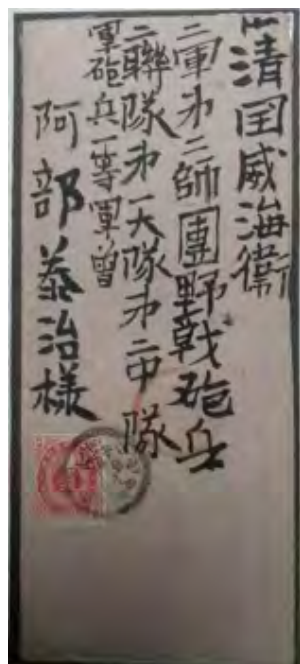 清国威海衛
二軍㐧二師團野戦砲兵
二聯隊㐧一大隊㐧二中隊
軍砲兵一等軍曹
阿部泰治様